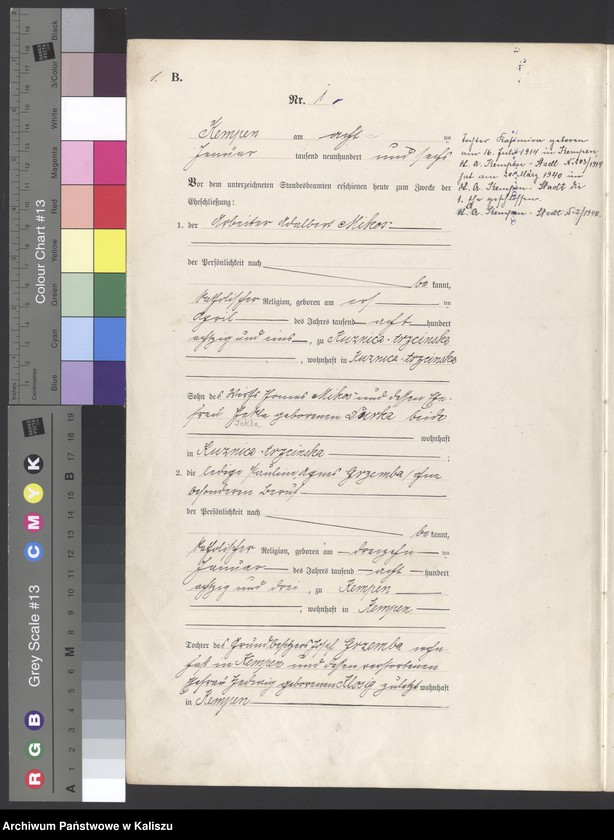 1. B.
Nr. 1.
Kempen am acht ten
Januar tausend neunhundert und sechs
Vor dem unterzeichneten Standesbeamten erschienen heute zum Zwecke der
Eheschließung:
1. der Arbeiter Adalbert Mikos
der Persönlichkeit nach
be kannt,
katholischer Religion, geboren am ers ten
April des Jahres tausend acht hundert
achtzig und eins, zu Kuznica-trzcinska
, wohnhaft in Kuznica-trzcinska
Sohn des Wirths Mikos und dessen Ehe-
frau geborenen beide
Tekla
wohnhaft
in Kuznica-trzcinska ;
2. die ledige Pauline Agnes Grzemba, ohne
besonderen Beruf
der Persönlichkeit nach
be kannt,
katholischer Religion, geboren am dreizehn ten
Januar des Jahres tausend acht hundert
achtzig und drei, zu Kempen
, wohnhaft in Kempen
Tochter des Grundbesitzers Josef Grzemba wohn-
haft in Kempen und dessen verstorbenen
Ehefrau Hedwig geborenen zuletzt wohnhaft
in Kempen
Tochter Kasimira geboren
am 16. Juli 1914 in Kempen
St. A. Kempen - Stadt Nr. 103/1914
hat am März 1940 in
St. A. Kempen - Stadt die
1. Ehe geschlossen.
St. A. Kempen - Stadt Nr. /1940.
Colour Chart #13
Blue
Cyan
Green
Yellow
Red
Magenta
White
3/Color
Black
Inches
Centimetres
Grey Scale #13
R G B
C M Y K
A 1 2 3 4 5 6 M 8 9 10 11 12 13 14 15 B 17 18 19
Archiwum Państwowe w Kaliszu